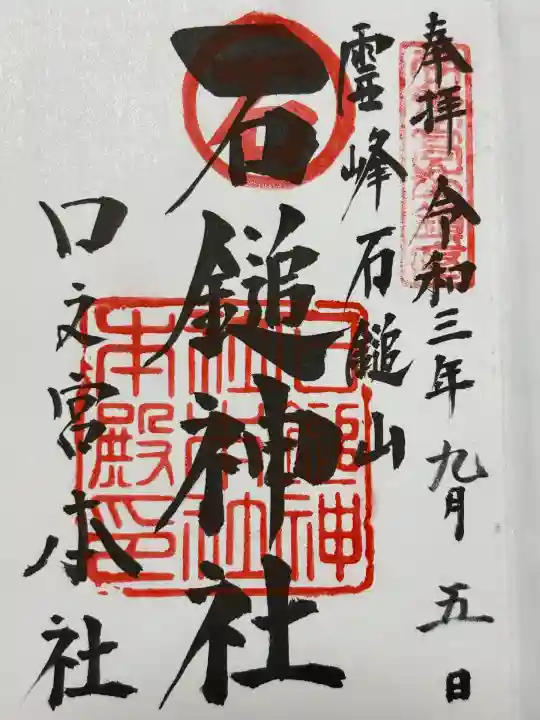 奉拝 令和三年九月五日
霊峰石鎚山
石鎚神社
口之宮本社
石鎚神
社本社
本殿印